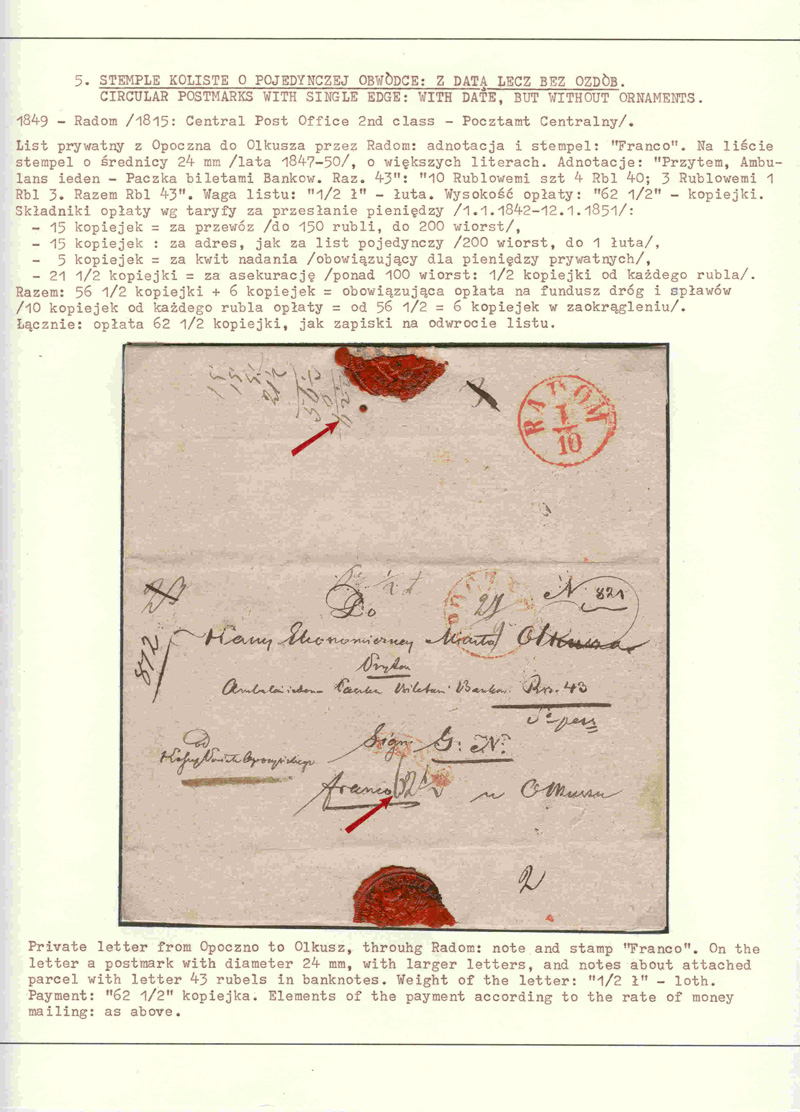 5. STEMPLE KOLISTE O POJEDYNCZEJ OBWÒDCE: Z DATĄ LECZ BEZ OZDÒB.
CIRCULAR POSTMARKS WITH SINGLE EDGE: WITH DATE, BUT WITHOUT ORNAMENTS.
1849 - Radom /1815: Central Post Office 2nd class - Pocztamt Centralny/.
List prywatny z Opoczna do Olkusza przez Radom: adnotacja i stempel: "Franco". Na liście
stempel o średnicy 24 mm /lata 1847-50/, o większych literach. Adnotacje: "Przytem, Ambu-
lans ieden - Paczka biletami Bankow. Raz. 43": "10 Rublowemi szt 4 Rbl 40; 3 Rublowemi 1
Rbl 3. Razem Rbl 43". Waga listu: "1/2 ł" - łuta. Wysokość opłaty: "62 1/2" - kopiejki.
Składniki opłaty wg taryfy za przesłanie pieniędzy /1.1.1842-12.1.1851/:
- 15 kopiejek = za przewóz /do 150 rubli, do 200 wiorst/,
- 15 kopiejek : za adres, jak za list pojedynczy /200 wiorst, do 1 łuta/,
- 5 kopiejek = za kwit nadania /obowiązujący dla pieniędzy prywatnych/,
- 21 1/2 kopiejki = za asekurację /ponad 100 wiorst: 1/2 kopiejki od każdego rubla/.
Razem: 56 1/2 kopiejki + 6 kopiejek = obowiązująca opłata na fundusz dróg i spławów
/10 kopiejek od każdego rubla opłaty = od 56 1/2 = 6 kopiejek w zaokrągleniu/.
Łącznie: opłata 62 1/2 kopiejki, jak zapiski na odwrocie listu.
RADOM
I
10
1/2 ł
OPOCZNO
28
N 821
Do
Kassy Ekonomiczney Miasta Olkusza
Przytem
Rs. 43
872
Sign G: N:
od
franco 62 1/2 w Olkuszu
2
Private letter from Opoczno to Olkusz, throuhg Radom: note and stamp "Franco". On the
letter a postmark with diameter 24 mm, with larger letters, and notes about attached
parcel with letter 43 rubels in banknotes. Weight of the letter: "1/2 ł" - loth.
Payment: "62 1/2" kopiejka. Elements of the payment according to the rate of money
mailing: as above.